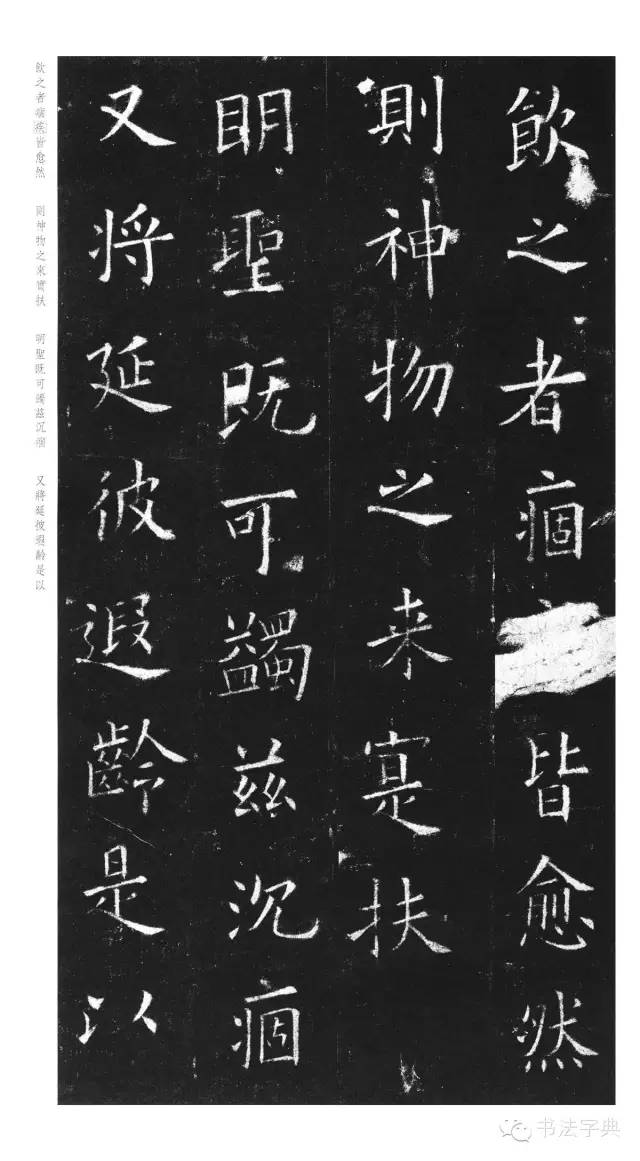 飲之者痼皆愈然
則神物之来寔扶
眀聖既可蠲兹沉痼
又将延彼遐齡是以
飲之者痼疾皆愈然 則神物之來實扶 明聖既可蠲兹沉痼 又將延彼遐齡是以
书法字典